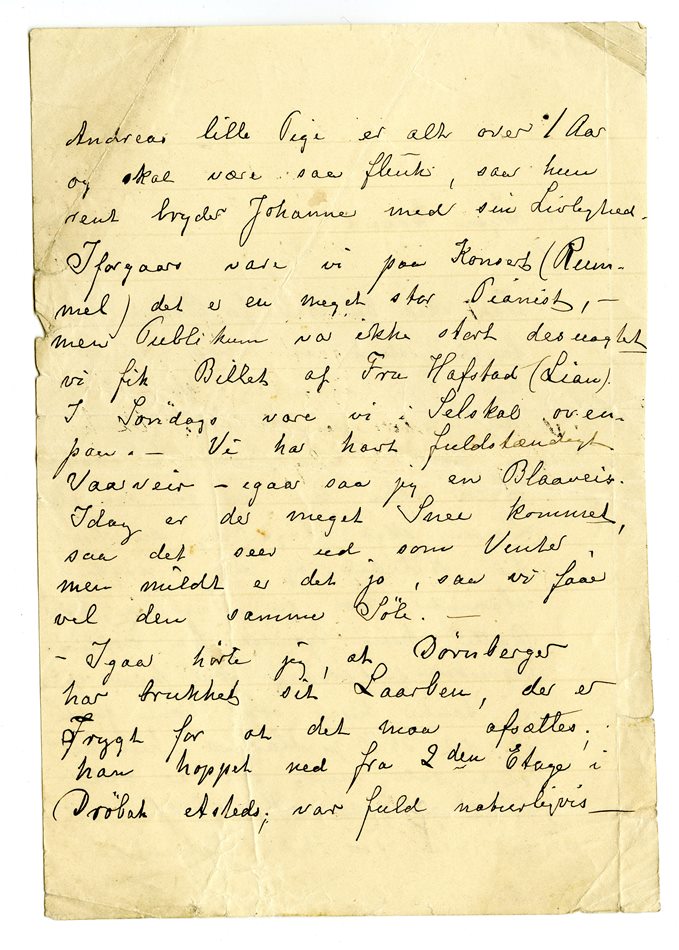 Andreas lille Pige er alt over 1 Aar
og skal være saa flink, saa hun
rent bryder Johanne med sin Livlighed.
Iforgaars vare vi paa Konsert (Rum-
mel) det er en meget stor Pianist, –
men Publikum va ikke stort desuagtet
vi fik Billet af Fru Hafstad (Lian).
I Söndags vare vi i Selskab oven-
paa. – Vi har havt fuldstændigt
Vaarveir – igaar saa jeg en Blaaveis.
Idag er der meget Snee kommet,
saa det seer ud som Venter,
men mildt er det jo, saa vi faae
vel den samme Söle. –
– Igaar hörte jeg, at Dörnberger
har brukket sit Laarben, der er
Frygt for at det maa afsættes;
han hoppet ned fra 2den Etage i
Dröbak etsteds; var fuld naturligvis –